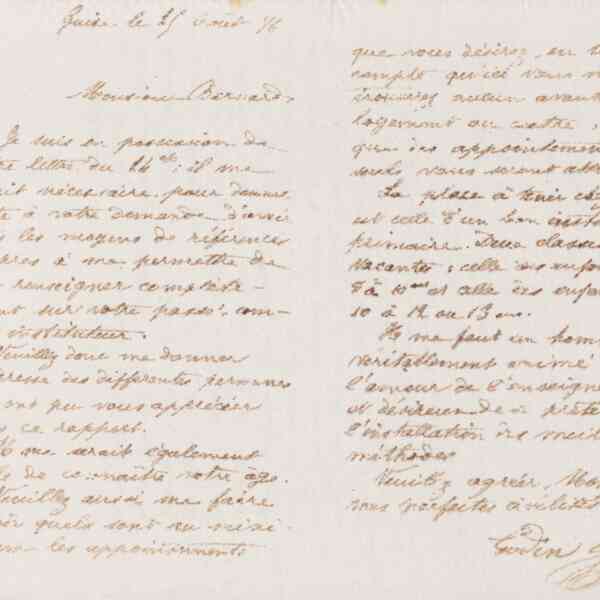 Guise le 25 Août 76
Monsieur Bernard,
Je suis en possession de
re lettre du 14 ct; il me
ait nécessaire, pour donner
te à votre demande d'avoir
s les moyens de références
res à me permettre de
renseigner complète-
nt sur votre passé com-
instituteur.
Veuillez donc me donner
resse des différentes personnes
ont pu vous apprécier
ce rapport.
Il me serait également
de connaître votre âge.
Veuillez aussi me faire
quels sont au mini-
les appointements
que vous désirez, en
compte qu'ici vous
trouverez aucun avant
logement ou autre,
que des appointement
seuls vous seront
La place à tenir
est celle d'un bon instit
primaire. Deux classes
vacantes; celle des enfan
8 à 10 ans et celle des enfan
10 à 12 ou 13 ans.
Il me faut un hom
véritablement animé
l'amour de l'enseigne
et désireux de prête
l'installation des meil
méthodes
Veuillez agréer, Mon
mes parfaites civilités
Godin